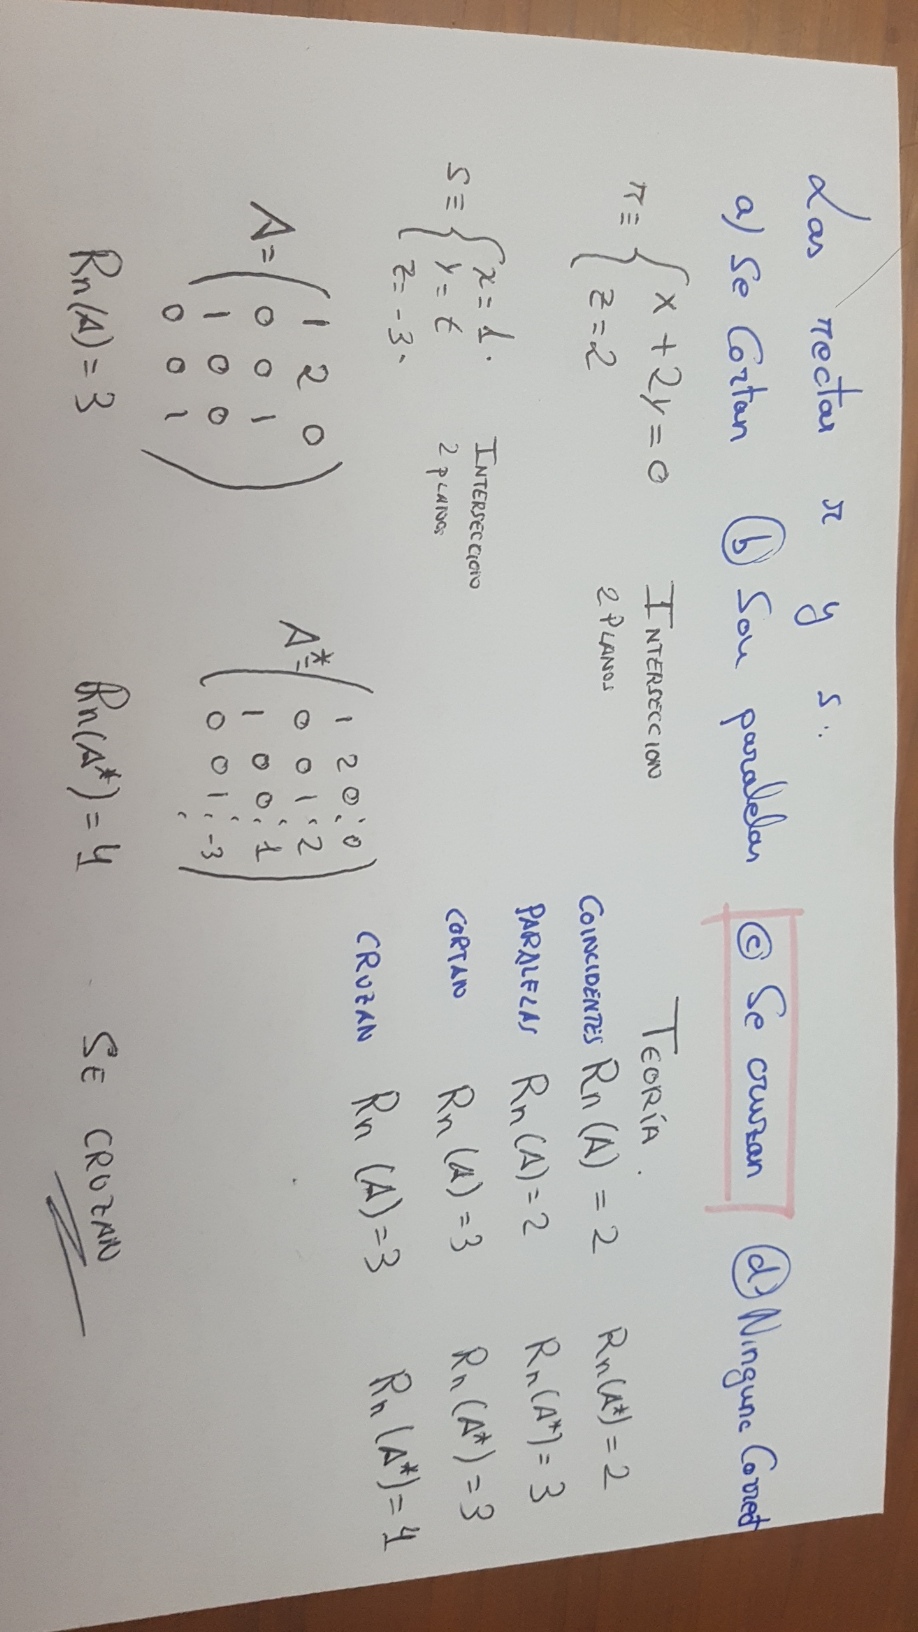 Las rectas r y s:
a) Se Cortan b) Son paralelas c) Se cruzan d) Ninguna Correct
r ≡ { x + 2y = 0
z = 2
INTERSECCION
2 PLANOS
s ≡ { x = 1.
y = t
z = -3.
INTERSECCION
2 PLANOS
TEORÍA.
COINCIDENTES Rn (A) = 2 Rn (A*) = 2
PARALELAS Rn (A) = 2 Rn (A*) = 3
CORTAN Rn (A) = 3 Rn (A*) = 3
CRUZAN Rn (A) = 3 Rn (A*) = 4
A = ( 1 2 0
0 0 1
1 0 0
0 0 1 )
A* = ( 1 2 0 ¦ 0
0 0 1 ¦ 2
1 0 0 ¦ 1
0 0 1 ¦ -3 )
Rn (A) = 3 Rn (A*) = 4 SE CRUZAN